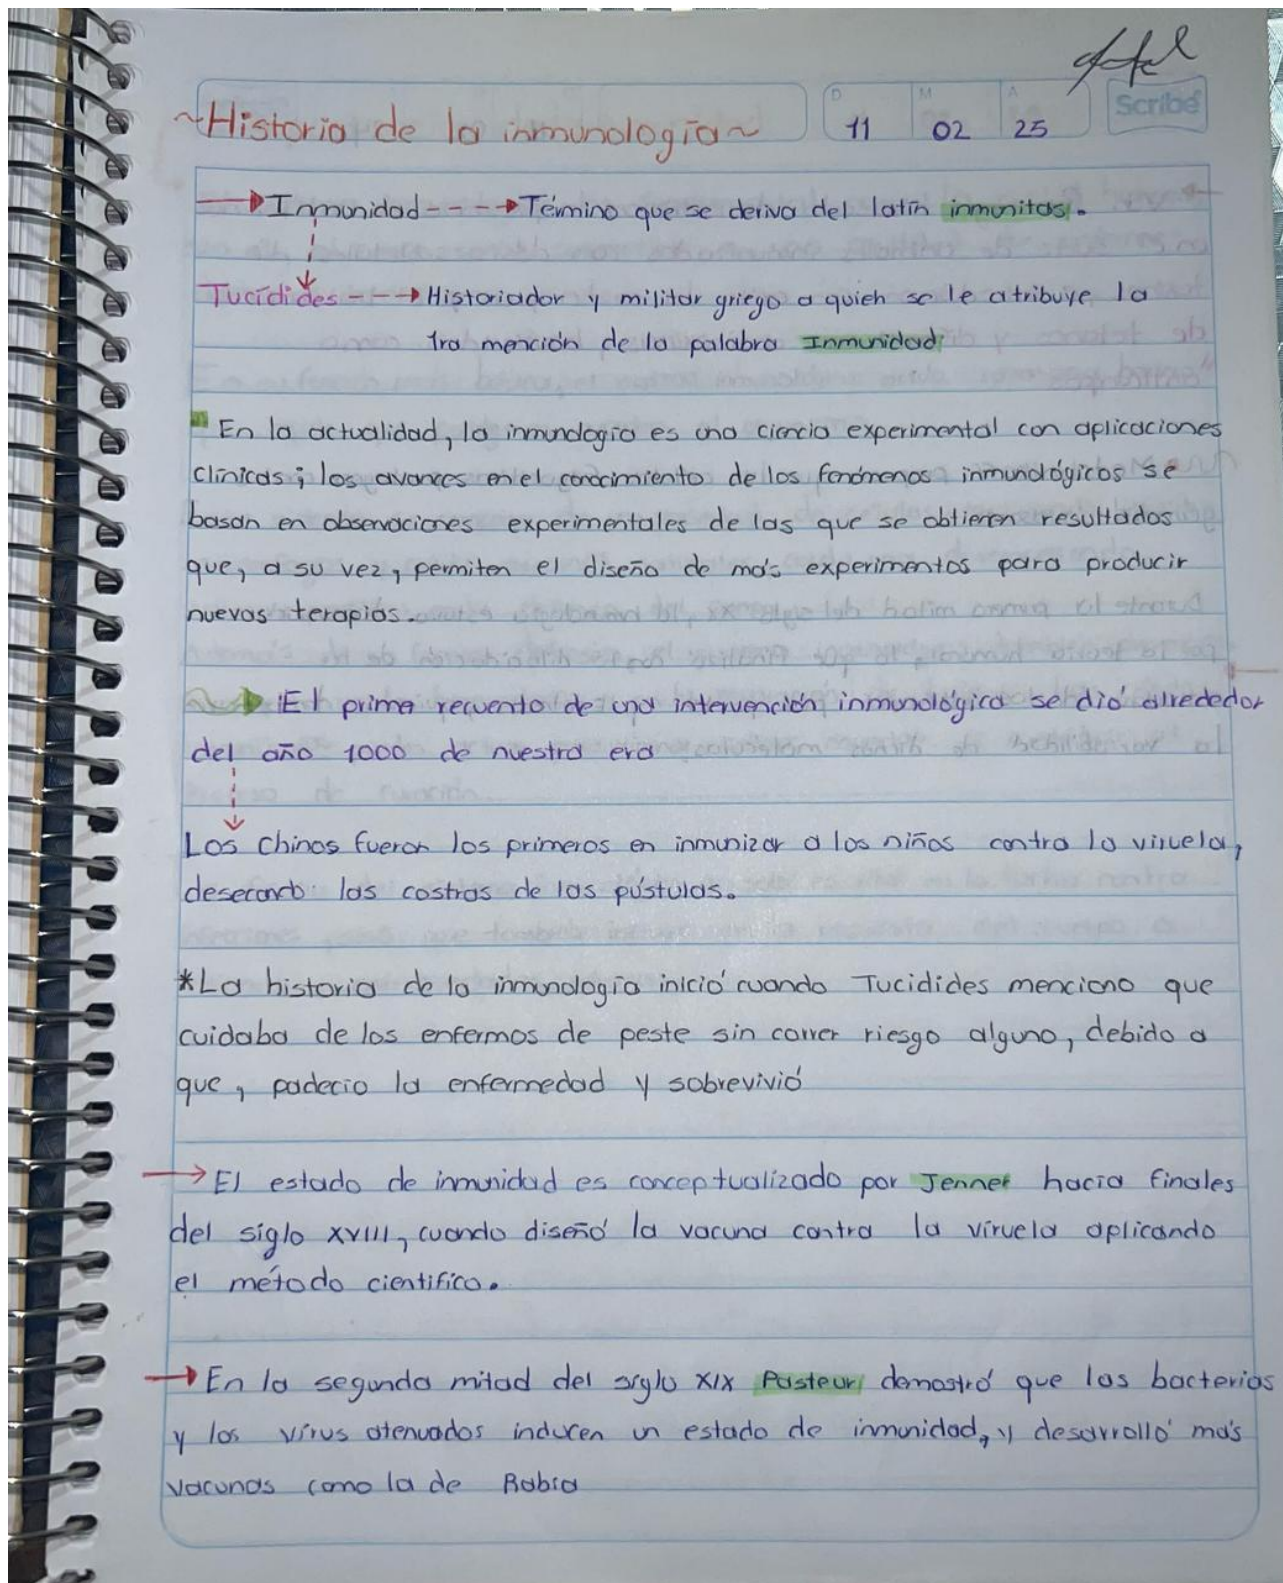 ~Historia de la inmunología~
D M A
11 02 25
Scribe
Inmunidad ----> Término que se deriva del latín inmunitas.
Tucídides ---> Historiador y militar griego a quien se le atribuye la
1ra mención de la palabra Inmunidad
En la actualidad, la inmunología es una ciencia experimental con aplicaciones
clínicas; los avances en el conocimiento de los fenómenos inmunológicos se
basan en observaciones experimentales de las que se obtienen resultados
que, a su vez, permiten el diseño de más experimentos para producir
nuevas terapias.
El primer recuento de una intervención inmunológica se dió alrededor
del año 1000 de nuestra era
Los chinos fueron los primeros en inmunizar a los niños contra la viruela,
desecando las costras de las pústulas.
*La historia de la inmunología inició cuando Tucidides menciono que
cuidaba de los enfermos de peste sin correr riesgo alguno, debido a
que, padecio la enfermedad y sobrevivió
→ El estado de inmunidad es conceptualizado por Jenner hacia finales
del siglo XVIII, cuando diseñó la vacuna contra la viruela aplicando
el método cientifico.
→ En la segunda mitad del siglo XIX Pasteur demostró que las bacterias
y los virus atenuados inducen un estado de inmunidad, y desarrolló más
vacunas como la de Rabia